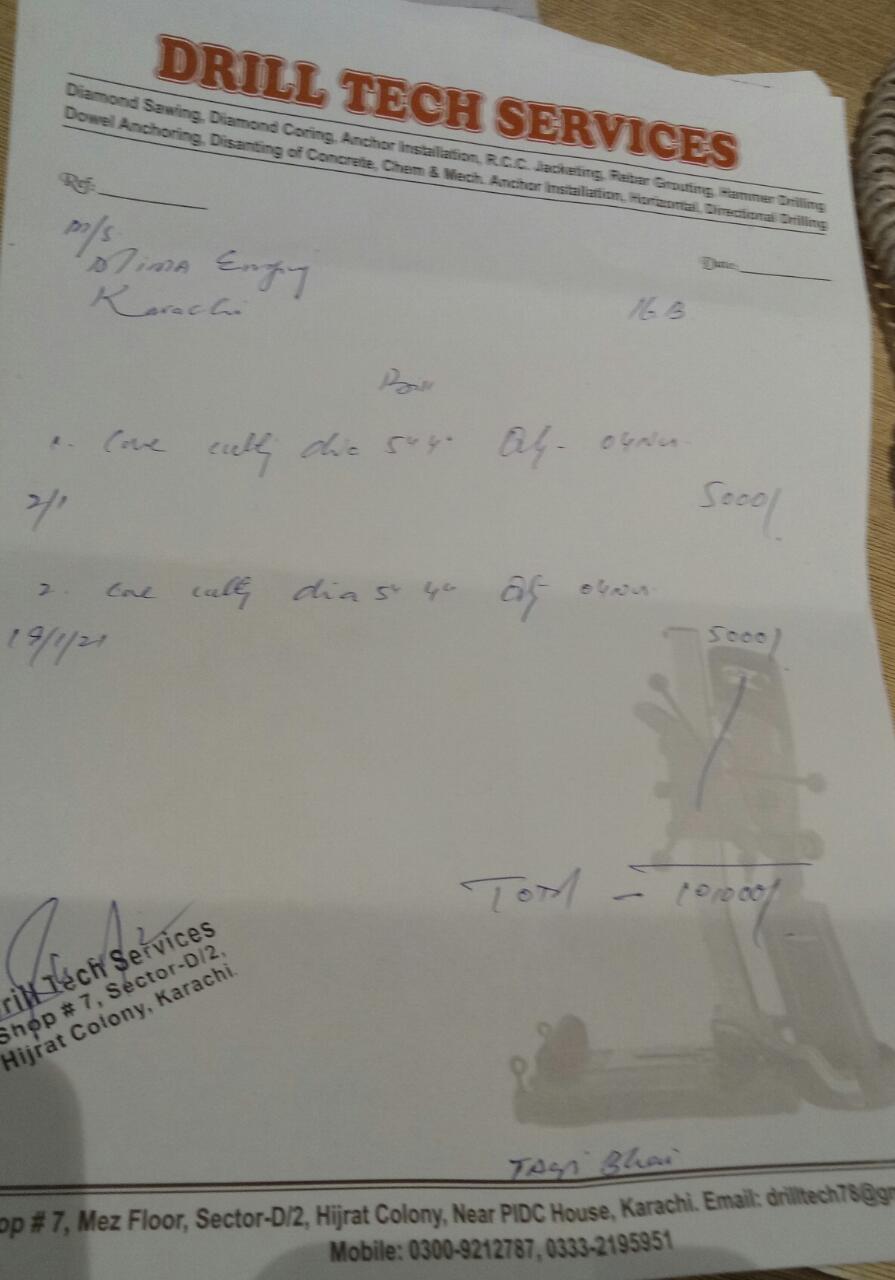 DRILL TECH SERVICES
Diamond Sawing, Diamond Coring, Anchor Installation, R.C.C. Jacketing, Rebar Grouting, Hammer Drilling
Dowel Anchoring, Disanting of Concrete, Chem & Mech. Anchor Installation, Horizontal, Directional Drilling
Ref:
Date:
M/S
Karachi
Bill
1. Core dia 5" 4" Qty - 04
2/1
5000/
2. Core dia 5" 4" Qty 04
19/1/21
5000/
Total - 10,000/
Drill Tech Services
Shop # 7, Sector-D/2,
Hijrat Colony, Karachi.
Taqi Bhai
op # 7, Mez Floor, Sector-D/2, Hijrat Colony, Near PIDC House, Karachi. Email: drilltech78@gm
Mobile: 0300-9212787, 0333-2195951